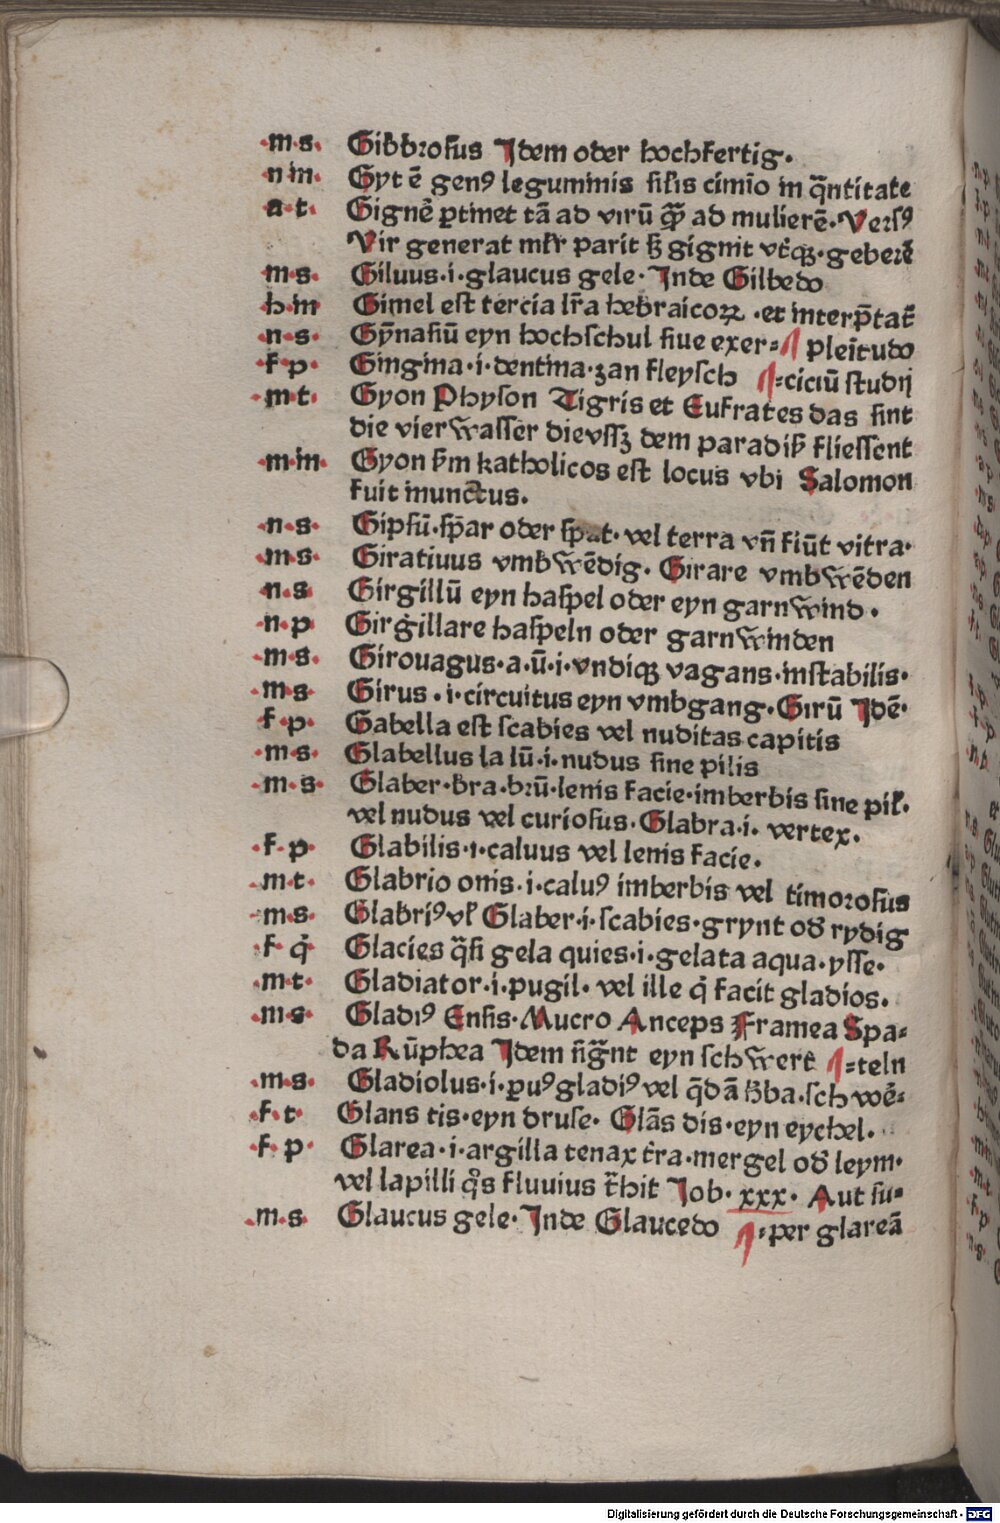 ·m·s· Gibbrosus Idem oder hochfertig.
n m· Gyt ē genꝰ leguminis silis cimīo in q̄ntitate
a·t· Gignē ꝑtinet tā ad virū ꝙ̄ ad mulierē·Versꝰ
Vir generat mlr̄ parit ꝫ gignit vtq̄ꝫ·geberē
m·s Giluus·i·glaucus gele·Inde Gilbedo
h·m Gimel est tercia lr̄a hebraicoꝝ ·et interp̄tat̄
n·s· Gȳnasiū eyn hochschul siue exer= ¶ pleītudo
·f·p· Gingina·i·dentina·zan fleysch ¶=ciciū studij
·m·t· Gyon Physon Tigris et Eufrates das sint
die vier wasser die vssz dem paradiß fliessent
·m·m· Gyon ẜm katholicos est locus vbi Salomon
fuit inunctus.
·n·s· Gipsū·sp̄ar oder spat·vel terra vn̄ fiūt vitra·
·m·s· Giratiuus vmbwēdig. Girare vmbwēden
n·s Girgillū eyn haspel oder eyn garnwind·
·n·p Girgillare haspeln oder garnwinden
·m·s· Girouagus·a·ū·i·vndiqꝫ vagans·instabilis·
·m·s· Girus·i·circuitus eyn vmbgang·Girū Idē·
f·p· Gabella est scabies vel nuditas capitis
·m·s· Glabellus la lū·i·nudus sine pilis
·m·s· Glaber·bra·brū·lenis facie·imberbis sine pil̄·
vel nudus vel curiosus·Glabra·i· vertex.
·f·p· Glabilis·i·caluus vel lenis facie.
·m·t· Glabrio onis·i·caluꝰ imberbis vel timorosus
·m·s· Glabriꝰ vl̄ Glaber·i·scabies·grynt od̄ rydig
·f·q̇ Glacies q̄si gela quies·i·gelata aqua·ysse·
·m·t· Gladiator·i·pugil·vel ille q̇ facit gladios.
·m·s· Gladiꝰ Ensis·Mucro Anceps Framea Spa=
da Rūphea Idem sig̅nt eyn schwert ¶=teln
·m·s· Gladiolus·i·ꝑuꝰ gladiꝰ vel q̄dā h̄ba·schwē=
·f·t· Glans tis·eyn druse· Glās dis·eyn eychel.
·f·p· Glarea·i·argilla tenax t̄ra·mergel od̄ leym·
vel lapilli q̊s fluuius t̄hit Job·xxx· Aut su=
·m·s· Glaucus gele·Inde Glaucedo ¶=per glareā
Digitalisierung gefördert durch die Deutsche Forschungsgemeinschaft - DFG